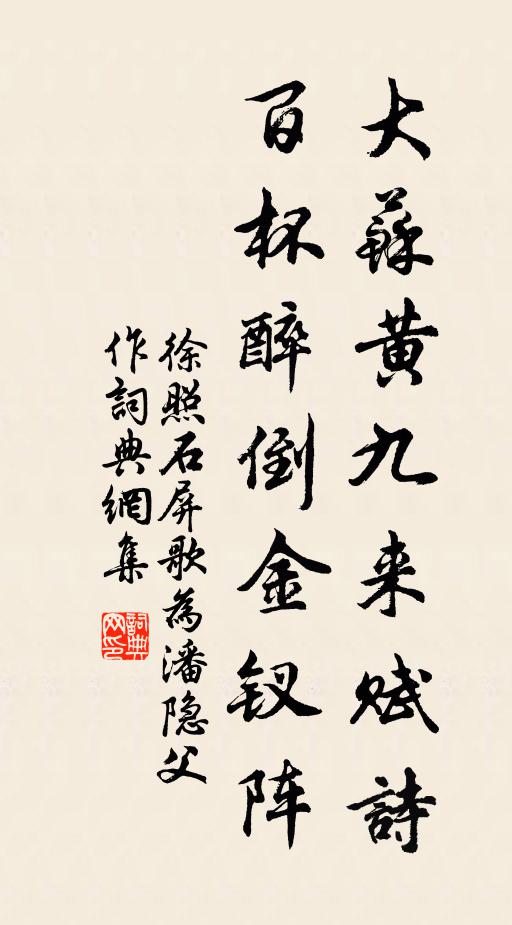 大蘇黄九来赋詩
百杯醉倒金钗阵
徐照石屏歌為潘隐父
作詞典網集
詞典网印